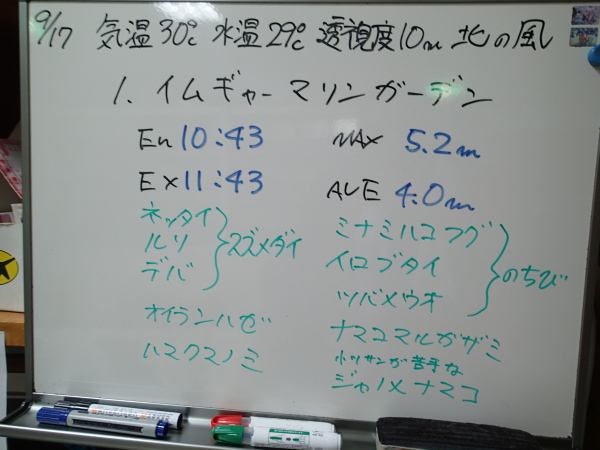 9/17 気温30℃ 水温29℃ 透視度10m 北の風
1. イムギャーマリンガーデン
En 10:43 MAX 5.2m
Ex 11:43 AVE 4.0m
ネッタイ
ルリ
デバ
スズメダイ
オイランハゼ
ハマクマノミ
ミナミハコフグ
イロブダイ
ツバメウオ
のちび
ナマコマルガザミ
が苦手な
ジャノメナマコ